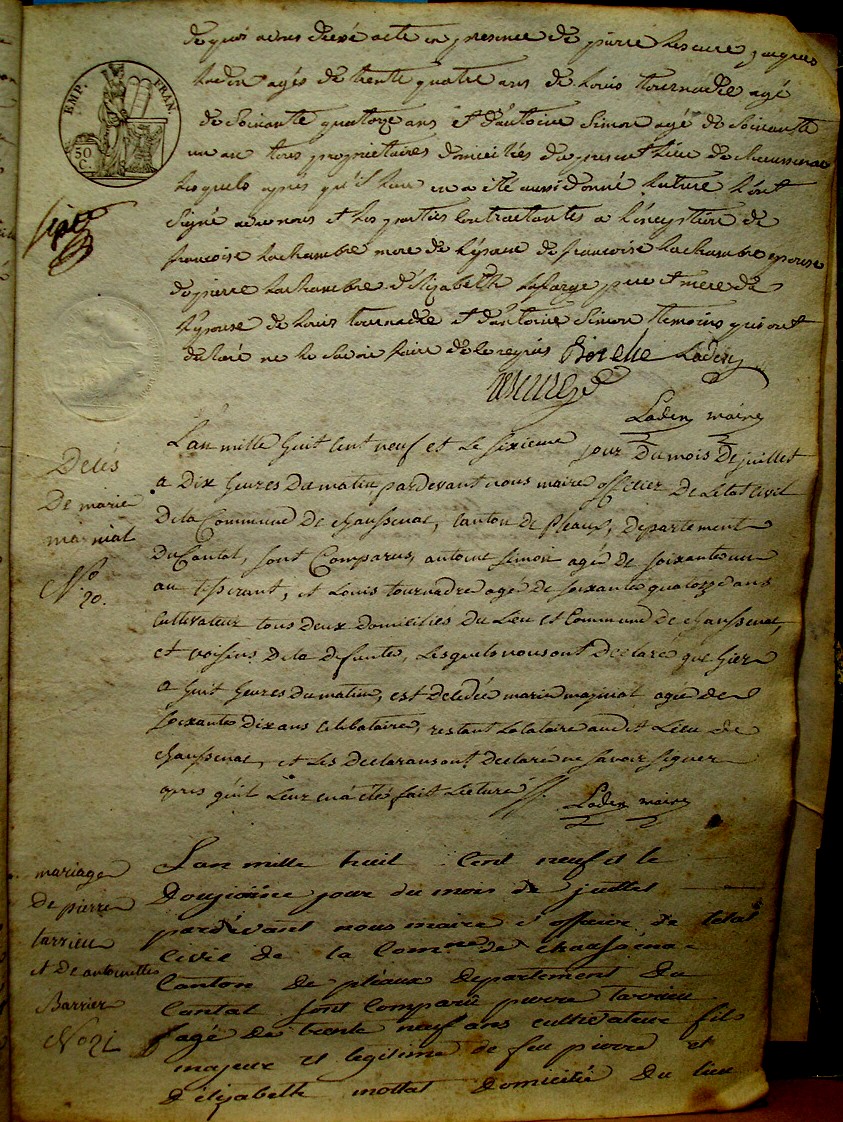 EMP. FRAN.
50 C.
de quoi avons dressé acte en presence de pierre Lescure, jacques
Laden agés de trente quatre ans de Louis tournadre agé
de Soixante quatorze ans et d'antoine Simon agé de Soixante
un an tous proprietaires domiciliés du present Lieu de chaussenac
Lesquels apres qu'il Leur en a été aussi donné Lecture L'ont
Signé avec nous et Les parties Contractantes a L'exception de
francoise Lachambre mere de L'epoux de francoise Lachambre epouse
de pierre Lachambre d'Elizabeth Lafarge pere et mere de
L'epouse de Louis tournadre et d'antoine Simon temoins qui ont
declaré ne le Savoir faire de ce requis Laden
Lescure
Laden maire
L'an mille huit cent neuf et Le Sixieme jour Du mois De juillet
a Dix heures Du matin pardevant nous maire officier De L'etat Civil
De la Commune De chaussenac, Canton de Pleaux, Departement
Du Cantal, Sont Comparus, antoine Simon agé de soixante un
an tisserant, et Louis tournadre agé de soixante quatorze ans
Cultivateur tous deux domiciliés Du Lieu et Commune De chaussenac,
et voisins De la defunte, Lesquels nous ont Declaré que hier
a huit heures Du matin, est Decedée marie marniat agée de
soixante dix ans Celibataire, restant Locataire audit Lieu de
chaussenac, et Les Declarans ont Declaré ne savoir signer
apres qu'il Leur en a été fait Lecture
Laden maire
Decés
De marie
marniat
No
20.
L'an mille huit Cent neuf et le
Douzième jour du mois de juillet
pardevant nous maire et officier de l'etat
Civil de la Comne de chaussenac
Canton de pléaux departement du
Cantal Sont Comparu pierre tarrieu
agé de trente neuf ans cultivateur fils
majeur et legitime de feu pierre et
d'elizabeth mottat domicilié du lieu
mariage
De pierre
tarrieu
et De antoinette
Barrier
No 21